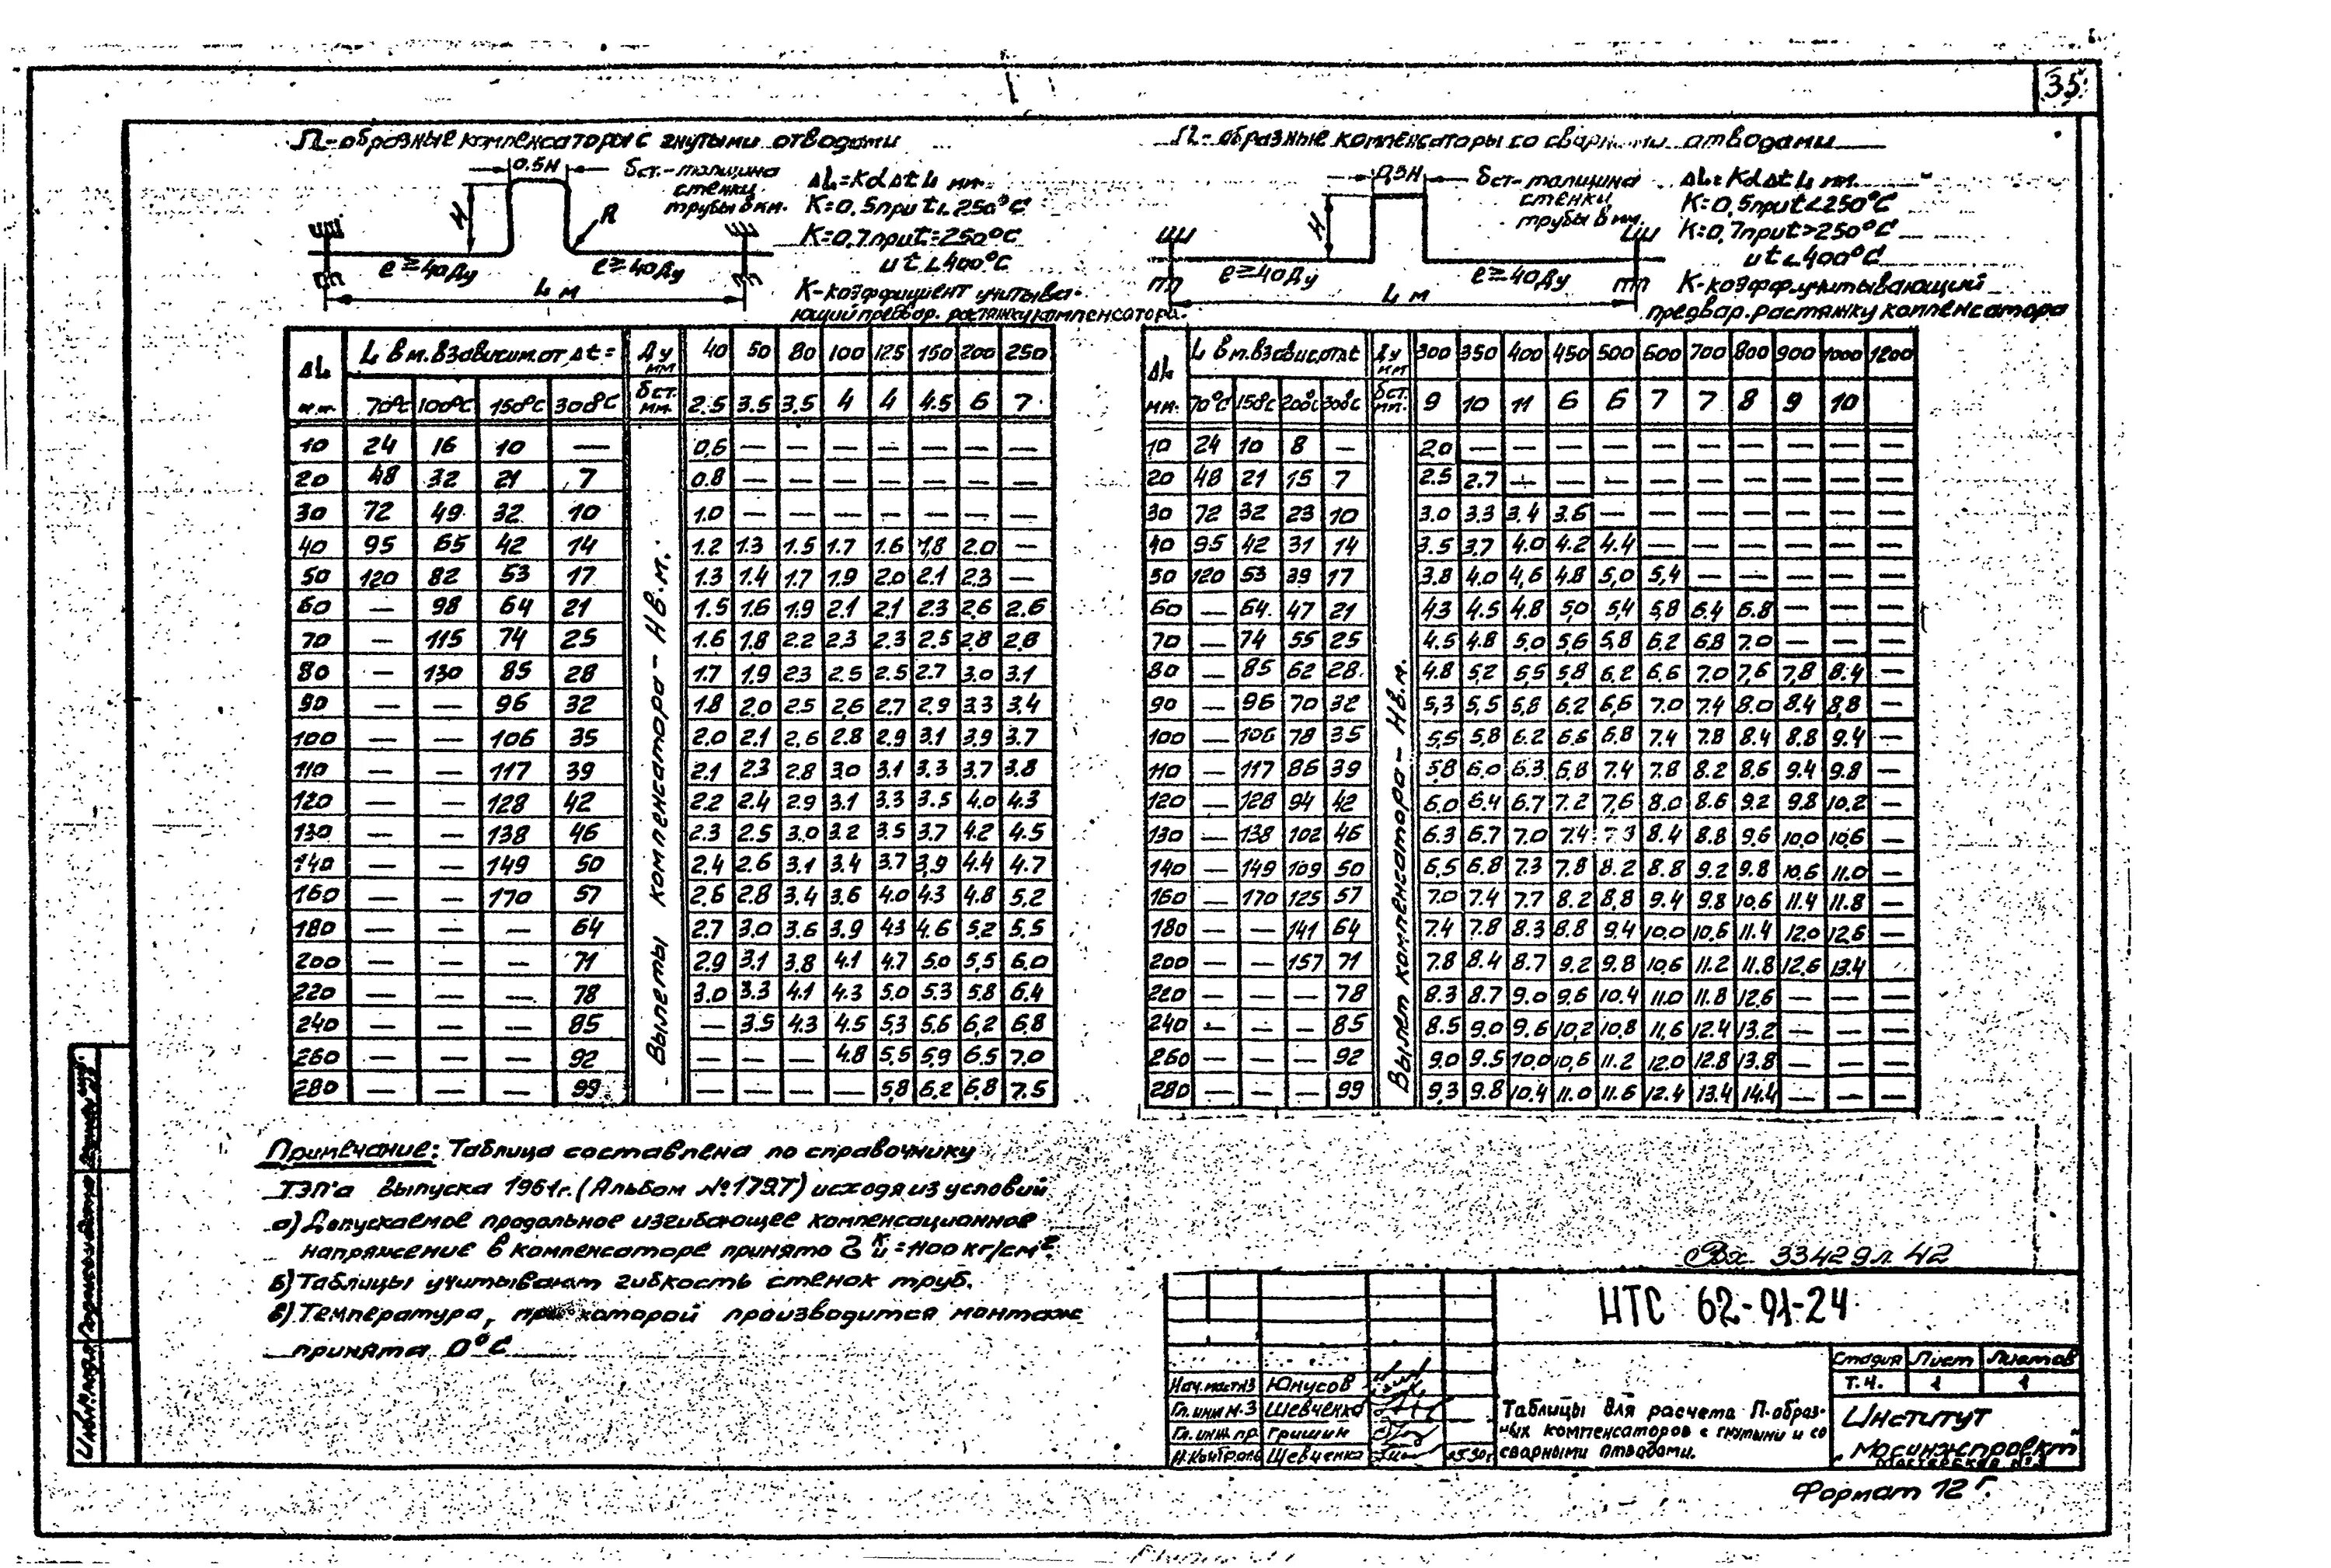 35
П-образные компенсаторы с гнутыми отводами
0.5H
бст.-толщина
стенки
трубы в мм.
ΔL=KαΔtL мм.
K=0,5 при t<250°C
K=0,7 при t=250°C
и t<400°C
H
R
ℓ≥40Ду
ℓ≥40Ду
L м
K-коэффициент учитыва-
ющий предвар. растяжку компенсатора.
П-образные компенсаторы со сварными отводами
0,5H
бст-толщина
стенки,
трубы в мм.
ΔL=KαΔtL мм.
K=0,5 при t<250°C
K=0,7 при t>250°C
и t<400°C
H
ℓ≥40Ду
ℓ≥40Ду
L м
K-коэфф.учитывающий
предвар.растяжку компенсатора
ΔL L в м. в зависим. от Δt= Ду мм 40 50 80 100 125 150 200 250
м.м. 70°C 100°C 150°C 300°C бст. мм. 2.5 3.5 3.5 4 4 4.5 6 7
Вылеты компенсатора - H в. м.
10 24 16 10 — 0,6 — — — — — — —
20 48 32 21 7 0.8 — — — — — — —
30 72 49 32 10 1.0 — — — — — — —
40 95 65 42 14 1.2 1.3 1.5 1.7 1.6 1,8 2.0 —
50 120 82 53 17 1.3 1.4 1.7 1.9 2.0 2.1 2.3 —
60 — 98 64 21 1.5 1.6 1.9 2.1 2,1 2.3 2,6 2.6
70 — 115 74 25 1.6 1.8 2.2 2.3 2.3 2.5 2,8 2.8
80 — 130 85 28 1.7 1.9 2.3 2.5 2.5 2.7 3.0 3.1
90 — — 96 32 1.8 2.0 2.5 2,6 2.7 2.9 3.3 3.4
100 — — 106 35 2.0 2.1 2.6 2.8 2.9 3.1 3.9 3.7
110 — — 117 39 2.1 2.3 2.8 3.0 3.1 3.3 3.7 3.8
120 — — 128 42 2.2 2.4 2.9 3.1 3.3 3.5 4.0 4.3
130 — — 138 46 2.3 2.5 3.0 3.2 3.5 3.7 4.2 4.5
140 — — 149 50 2.4 2.6 3.1 3.4 3.7 3,9 4.4 4.7
160 — — 170 57 2.6 2.8 3.4 3.6 4.0 4.3 4.8 5.2
180 — — — 64 2.7 3.0 3.6 3.9 4.3 4.6 5.2 5.5
200 — — — 71 2.9 3.1 3.8 4.1 4.7 5.0 5,5 6.0
220 — — — 78 3.0 3.3 4.1 4.3 5.0 5.3 5.8 6.4
240 — — — 85 — 3.5 4.3 4.5 5,3 5.6 6,2 6,8
260 — — — 92 — — — 4.8 5.5 5.9 6.5 7.0
280 — — — 99 — — — — 5,8 6.2 6,8 7.5
ΔL L в м. в завис.от Δt Ду мм 300 350 400 450 500 600 700 800 900 1000 1200
мм. 70°C 150°C 200°C 300°C бст. мм. 9 10 11 6 6 7 7 8 9 10
Вылет компенсатора - H в. м.
10 24 10 8 — 2.0 — — — — — — — — — —
20 48 21 15 7 2.5 2.7 — — — — — — — — —
30 72 32 23 10 3.0 3.3 3.4 3.6 — — — — — — —
40 95 42 31 14 3.5 3.7 4.0 4.2 4.4 — — — — — —
50 120 53 39 17 3.8 4.0 4,6 4.8 5,0 5,4 — — — — —
60 — 64 47 21 4.3 4.5 4.8 5,0 5,4 5,8 6.4 6.8 — — —
70 — 74 55 25 4.5 4.8 5.0 5,6 5,8 6.2 6,8 7.0 — — —
80 — 85 62 28 4.8 5,2 5,5 5,8 6.2 6.6 7.0 7,6 7,8 8.4 —
90 — 96 70 32 5,3 5,5 5,8 6.2 6,6 7.0 7.4 8.0 8.4 8,8 —
100 — 106 78 35 5,5 5,8 6.2 6.6 6,8 7.4 7.8 8.4 8.8 9.4 —
110 — 117 86 39 5.8 6.0 6.3 6,8 7.4 7.8 8.2 8.6 9.4 9.8 —
120 — 128 94 42 6.0 6.4 6.7 7.2 7,6 8.0 8.6 9.2 9.8 10.2 —
130 — 138 102 46 6.3 6.7 7.0 7.4 8.4 8.8 9.6 10,0 10,6 —
140 — 149 109 50 6,5 6.8 7.3 7.8 8.2 8.8 9.2 9.8 10.6 11.0 —
160 — 170 125 57 7.0 7.4 7.7 8.2 8,8 9.4 9.8 10,6 11.4 11.8 —
180 — — 141 64 7.4 7.8 8.3 8.8 9.4 10.0 10,6 11.4 12.0 12,6 —
200 — — 157 71 7.8 8.4 8.7 9.2 9.8 10,6 11.2 11.8 12.6 13.4
220 — — — 78 8.3 8.7 9.0 9.6 10.4 11.0 11.8 12,6 — — —
240 — — — 85 8.5 9.0 9.6 10,2 10,8 11,6 12.4 13.2 — — —
260 — — — 92 9.0 9.5 10.0 10,6 11.2 12.0 12.8 13.8 — — —
280 — — — 99 9,3 9.8 10.4 11.0 11.6 12.4 13.4 14.4 — — —
Примечание: Таблица составлена по справочнику
ТЭП'а выпуска 1961г. (Альбом №179Т) исходя из условий
а) Допускаемое продольное изгибающее компенсационное
напряжение в компенсаторе принято = 1100 кг/см².
б) Таблицы учитывают гибкость стенок труб.
в) Температура, при которой производится монтаж
принята 0°C
Вх. 33429л. 42
НТС 62-91-24
Стадия Лист Листов
Т.Ч. 1 1
Нач.маст№3 Юнусов
Гл. инж м.3 Шевченко
Гл. инж пр. Гришин
Н.Контроль Шевченко
Таблицы для расчета П-образ-
ных компенсаторов с гнутыми и со
сварными отводами.
Институт
"Мосинжпроект"
мастерская №3
Формат 12 Г.
Инв.№подл.
Подпись и дата